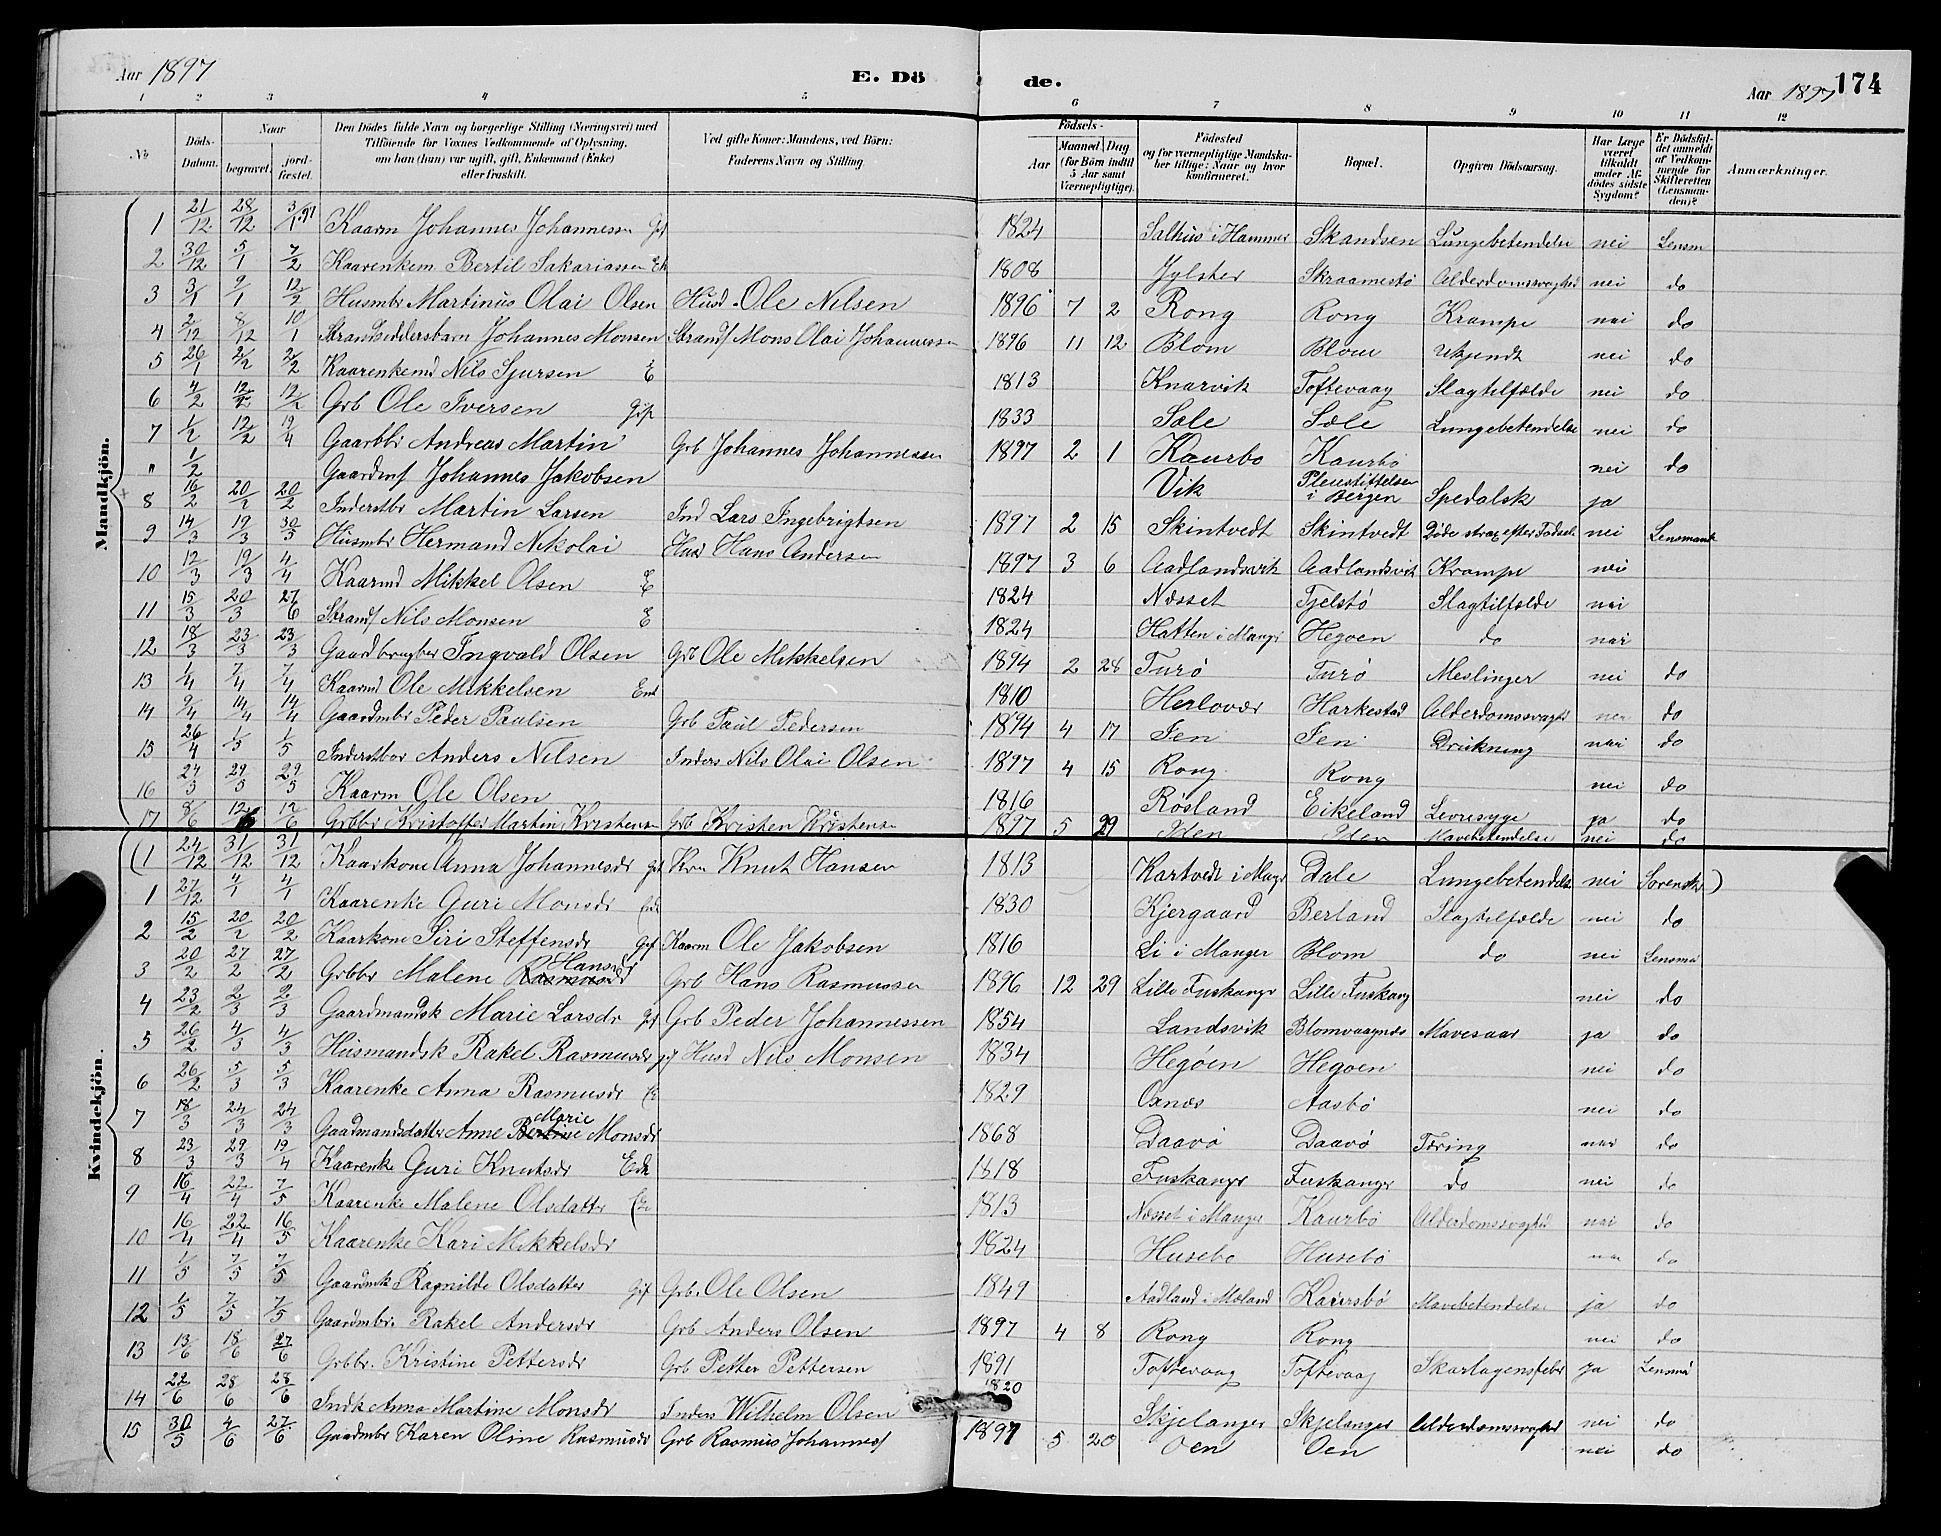 Aar 1897 E. Döde. Aar 1897 174
1 2 3 4 5 6 7 8 9 10 11 12
No Döds-Datum. Naar begravet. jordfæstet. Den Dödes fulde Navn og borgerlige Stilling (Næringsvei) med Tilföiende for Voxnes Vedkommende af Oplysning, om han (hun) var ugift, gift, Enkemand (Enke) eller fraskilt. Ved gifte Koner: Mandens, ved Börn: Faderens Navn og Stilling. Födsels- Aar Maaned Dag (for Börn indtil 5 Aar samt Værnepligtige). Födested og for værnepligtige Mandskaber tillige: Naar og hvor konfirmeret. Bopæl. Opgiven Dödsaarsag. Har Læge været tilkaldt under Afdödes sidste Sygdom? Er Dödsfaldet anmeldt af Vedkommende for Skifteretten (Lensmanden)? Anmærkninger.
Mandkjön.
1 21/12 28/12 3/1 97 Kaarm Johannes Johannessen Gif 1824 Salhus i Hammer Skandsen Lungebetendelse nei Lensm
2 30/12 5/1 7/2 Kaarenkem Bertil Sakariassen Ek 1808 Jylster Skraamestø Alderdomssvaghed nei do
3 3/1 9/1 12/2 Husmbr Martinus Olai Olsen Husd Ole Nilsen 1896 7 2 Rong Rong Krampe nei do
4 2/12 8/12 10/1 Strandsidderbarn Johannes Monsen Strands Mons Olai Johannessen 1896 11 12 Blom Blom Ukjendt nei do
5 26/1 2/2 2/2 Kaarenkemd Nils Sjursen E 1813 Knarvik Toftevaag Slagtilfælde nei do
6 4/2 12/2 12/2 Grb Ole Iversen Gif 1833 Sæle Sæle Lungebetendelse nei do
7 1/2 12/2 19/4 Gaardbr Andreas Martin Grb Johannes Johannessen 1897 2 1 Kaurbo Kaurbø nei do
" 1/2 Gaardm Johannes Jakobsen Vik Pleiestiftelsen i Bergen Spedalsk ja
8 16/2 20/2 20/2 Inderstbr Martin Larsen Ind Lars Ingebrigtsen 1897 2 15 Skintvedt Skintvedt Døde strax efter Fødsel nei Lensmand
9 14/3 19/3 30/5 Husmbr Hermand Nikolai Husd Hans Andersen 1897 3 6 Aadlandsvik Aadlandsvik Krampe nei
10 12/3 19/3 4/4 Kaarmd Mikkel Olsen E 1824 Næsset Tjelstø Slagtilfælde nei
11 15/3 20/3 27/6 Strands Nils Monsen E 1824 Hatten i Manger Hegøen do nei
12 18/3 23/3 23/3 Gaardbrugbr Ingvald Olsen Grb Ole Mikkelsen 1894 2 28 Turø Turø Meslinger nei do
13 1/4 7/4 7/4 Kaarmd Ole Mikkelsen Enk 1810 Herlovær Harkestad Alderdomssvaghed nei do
14 9/4 14/4 14/4 Gaardmbr Peder Paulsen Grb Paul Pedersen 1894 4 17 Fen Fen Drukning nei do
15 26/4 1/5 1/5 Inderstbar Anders Nilsen Inders Nils Olai Olsen 1897 4 15 Rong Rong nei do
16 24/5 29/5 29/5 Kaarm Ole Olsen 1816 Røsland Eikeland Leversyge ja do
17 8/6 12/6 12/6 Grbbr Kristoffer Martin Kristensen Grb Kristen Kristensen 1897 5 29 Iden Iden Mavebetendelse nei do
Kvindekjön.
(1 24/12 31/12 31/12 Kaarkone Anna Johannesdr gif Krm Knut Hansen 1813 Kartvedt i Mangr Dale Lungebetendels nei Sorensk)
1 27/12 4/1 4/1 Kaarenke Guri Monsdr Enk 1830 Kjergaard Berland Slagtilfælde nei do
2 15/2 20/2 20/2 Kaarkone Siri Steffensdr Gif Kaarm Ole Jakobsen 1816 Li i Manger Blom do nei Lensmd
3 20/2 27/2 27/2 Grbbr Malene Hansdr Rasmusdr Grb Hans Rasmussen 1896 12 29 Lille Fuskanger Lille Fuskang nei do
4 23/2 2/3 2/3 Gaardmandsk Marie Larsdr gif Grb Peder Johannessen 1854 Landsvik Blomvaagnæs Mavesaar ja do
5 26/2 4/3 4/3 Husmandsk Rakel Rasmusdr gif Husd Nils Monsen 1834 Hegøen Hegøen nei do
6 26/2 5/3 5/3 Kaarenke Anna Rasmusdr E 1829 Oxnæs Aasbø nei do
7 18/3 24/3 24/3 Gaadmandsdatter Anne Marie Bertine Monsdr 1868 Daavø Daavø Tæring nei do
8 23/3 29/3 19/4 Kaarenke Guri Knutsdr Enk 1818 Fuskanger Fuskanger do nei do
9 16/4 22/4 7/5 Kaarenke Malene Olsdatter E 1813 Næsset i Manger Kaurbø Alderdomssvaghed nei do
10 16/4 22/4 16/5 Kaarenke Kari Mikkelsdr 1824 Husebø Husebø nei do
11 1/5 7/5 7/5 Gaardmk Ragnilde Olsdatter Gif Grb. Ole Olsen 1849 Aadland i Mæland Kauersbø Mavebetendelse ja do
12 1/5 7/5 7/5 Gaardmbr. Rakel Andersdr Grb Anders Olsen 1897 4 8 Rong Rong nei do
13 13/6 18/6 27/6 Grbbr. Kristine Pettersdr Grb Petter Pettersen 1891 Toftevaag Toftevaag Skarlagensfeber ja Lensmd
14 22/6 28/6 28/6 Indk Anna Martine Monsdr Inders Wilhelm Olsen 1820 Skjelanger Skjelanger Alderdomssvaghed nei do
15 30/5 4/6 27/6 Gaadmbr Karen Oline Rasmusdr Grb Rasmus Johannes 1897 5 20 Oen Oen nei do